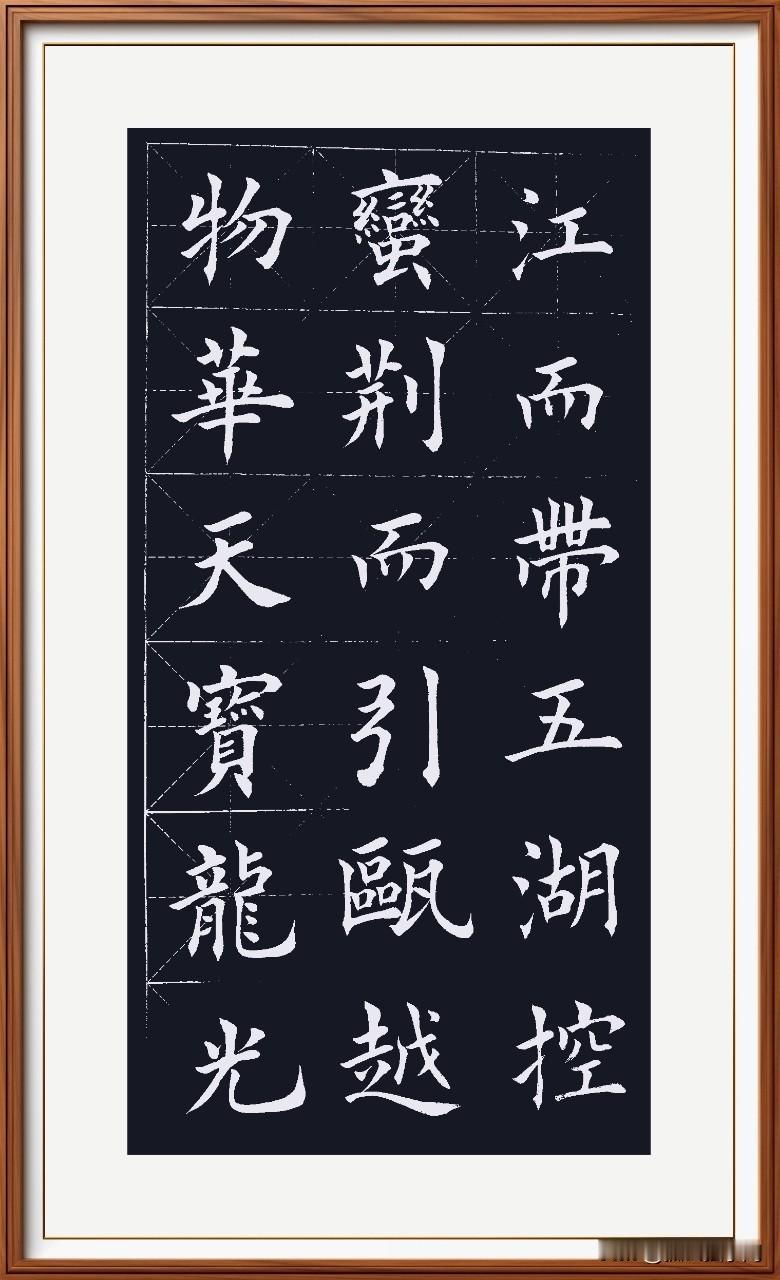 江而帶五湖控
蠻荆而引甌越
物華天寶龍光